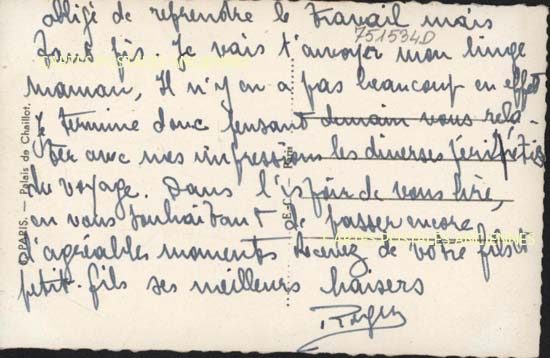 obligé de reprendre le travail mais
sans fês. Je vais t'envoyer mon linge
751534D
maman, Il n'y en a pas beaucoup en effet
Je termine donc pensant demain vous rela-
ter avec mes impressions les diverses péripéties
du voyage. Dans l'espoir de vous lire,
en vous souhaitant de passer encore
d'agréables moments recevez de votre
petit-fils ses meilleurs baisers
Roger
PARIS. — Palais de Chaillot.
Paris
CARTES POSTALES ANCIENNES